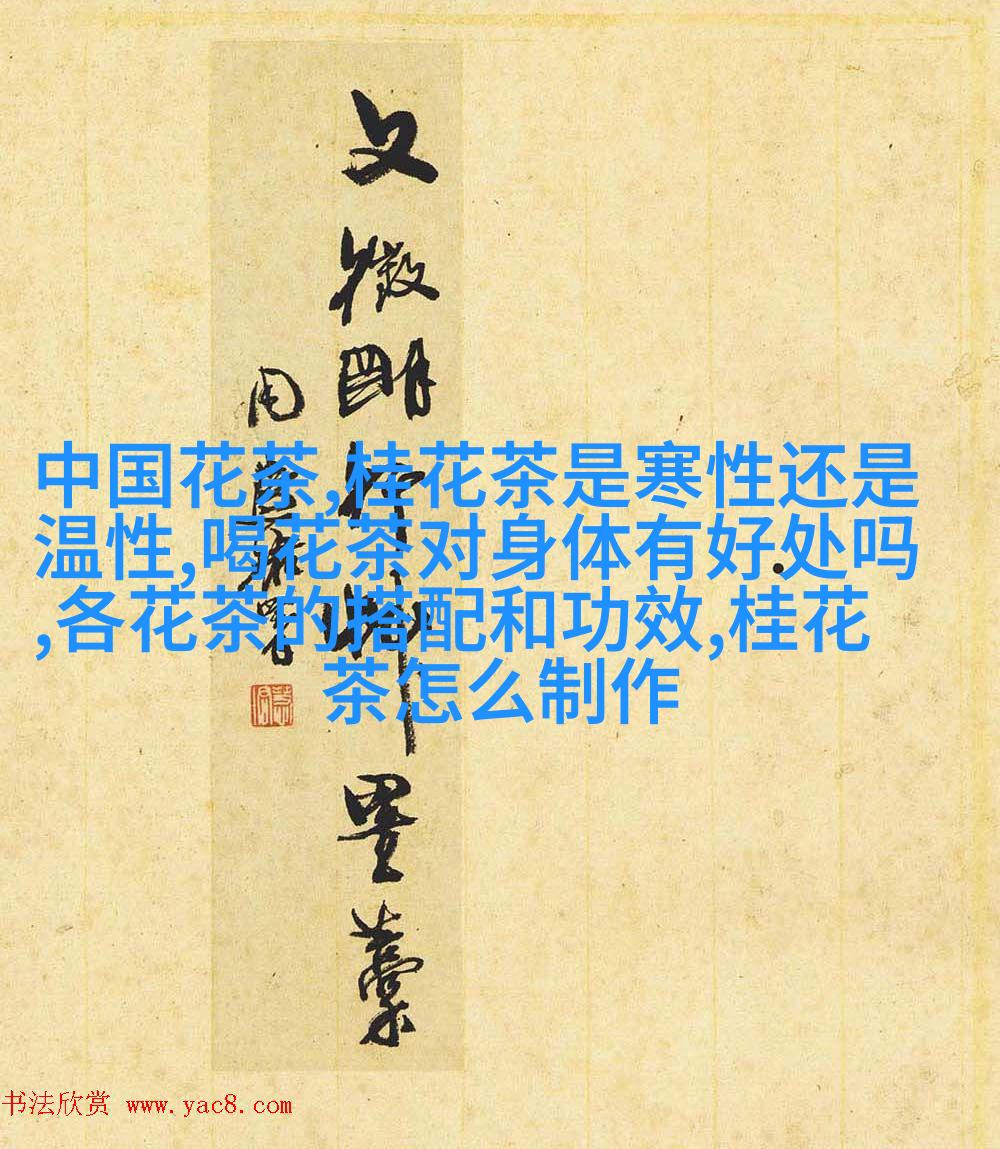 文徵明行墨藁
中国花茶,桂花茶是寒性还是
温性,喝花茶对身体有好处吗
,各花茶的搭配和功效,桂花
茶怎么制作
书法欣赏 www.yac8.com